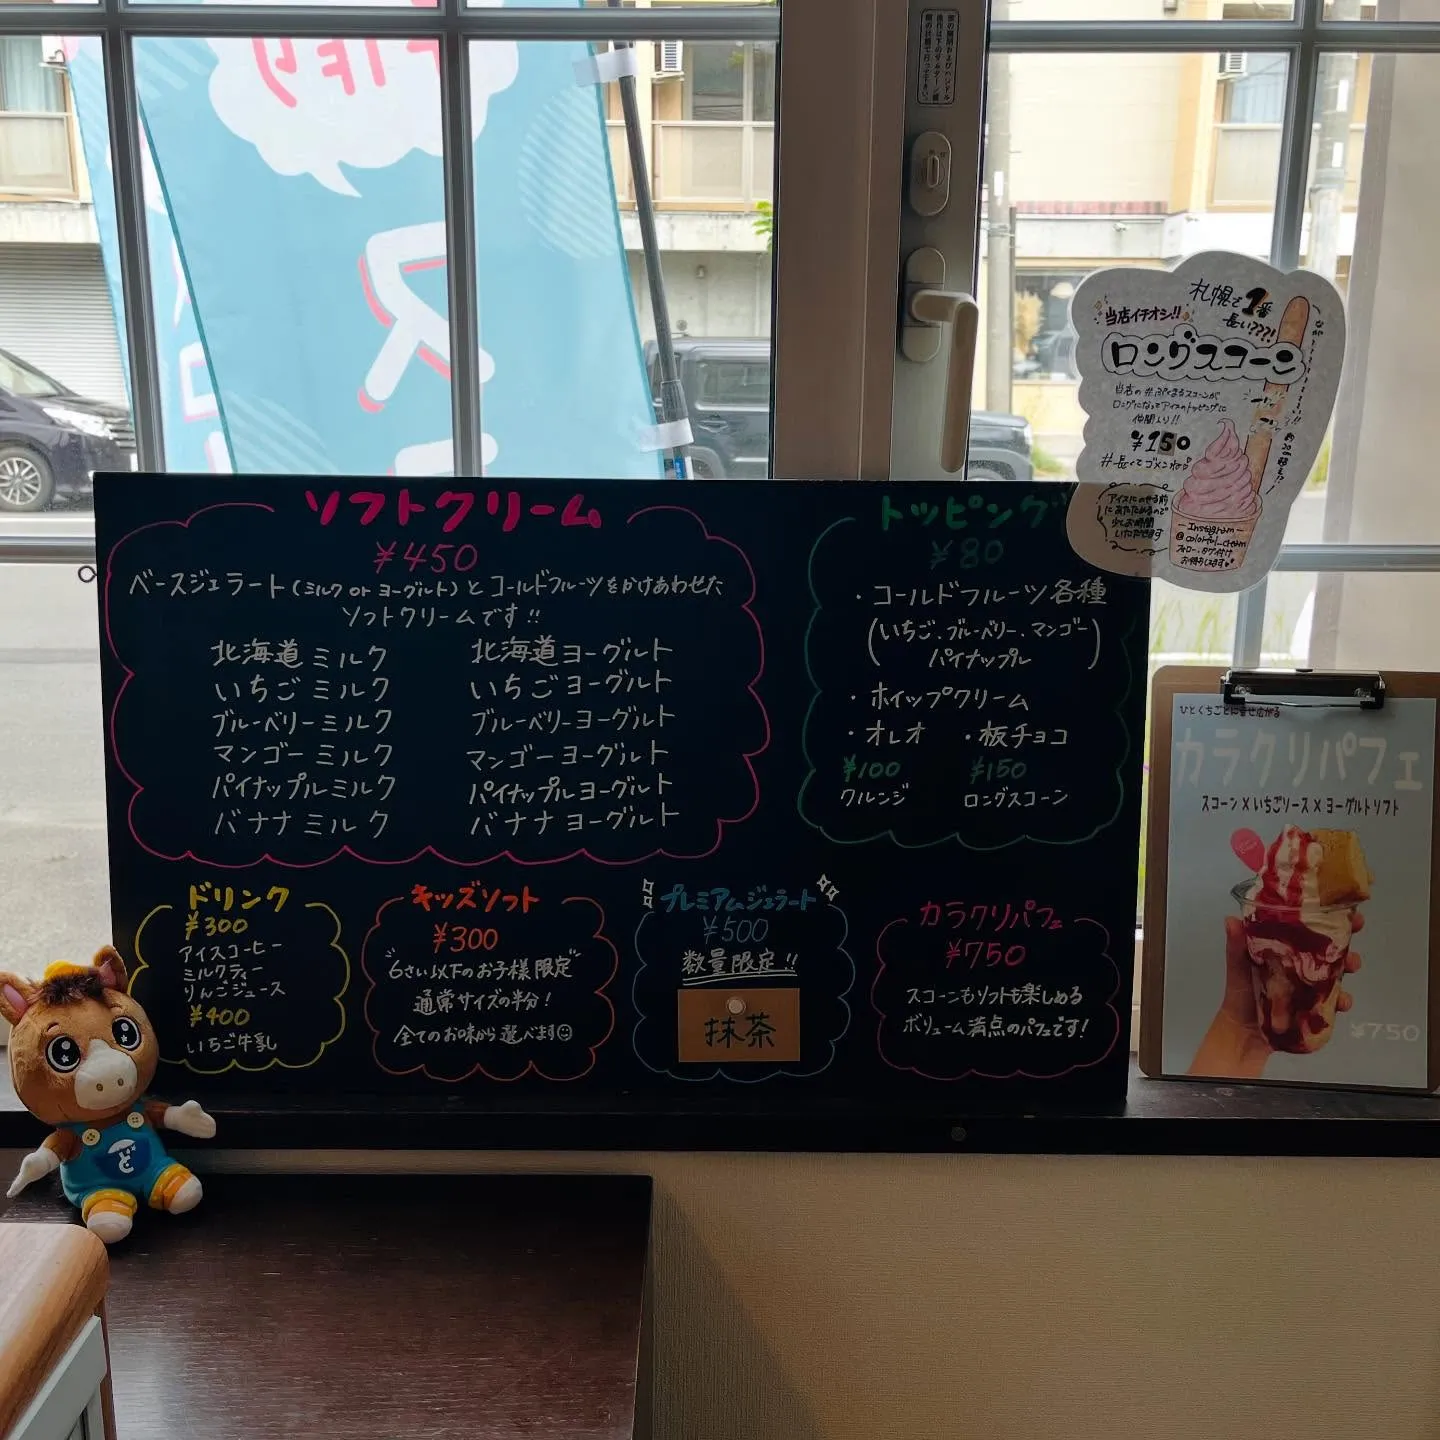 ソフトクリーム
¥450
ベースジェラート(ミルク or ヨーグルト)とコールドフルーツをかけあわせた
ソフトクリームです!!
北海道ミルク 北海道ヨーグルト
いちごミルク いちごヨーグルト
ブルーベリーミルク ブルーベリーヨーグルト
マンゴーミルク マンゴーヨーグルト
パイナップルミルク パイナップルヨーグルト
バナナミルク バナナヨーグルト
トッピング
¥80
・コールドフルーツ各種
(いちご、ブルーベリー、マンゴー
パイナップル)
・ホイップクリーム
・オレオ ・板チョコ
¥100 ¥150
クルンジ ロングスコーン
ドリンク
¥300
アイスコーヒー
ミルクティー
りんごジュース
¥400
いちご牛乳
キッズソフト
¥300
"6さい以下のお子様限定"
通常サイズの半分!
全てのお味から選べます
プレミアムジェラート
¥500
数量限定!!
抹茶
カラクリパフェ
¥750
スコーンもソフトも楽しめる
ボリューム満点のパフェです!
札幌で1番
長い???!
当店イチオシ!!
ロングスコーン
当店の#ぷくまるスコーンが
ロングになってアイスのトッピングに
仲間入り!!
¥150
#長くてゴメンね
アイスにのせる前
にあたためるので
少しお時間
いただきます
Instagram
@colorful_cream
フォロー、タグ付け
お待ちしてます
ひとくちごとに幸せ広がる
カラクリパフェ
スコーン×いちごソース×ヨーグルトソフト
¥750
ど